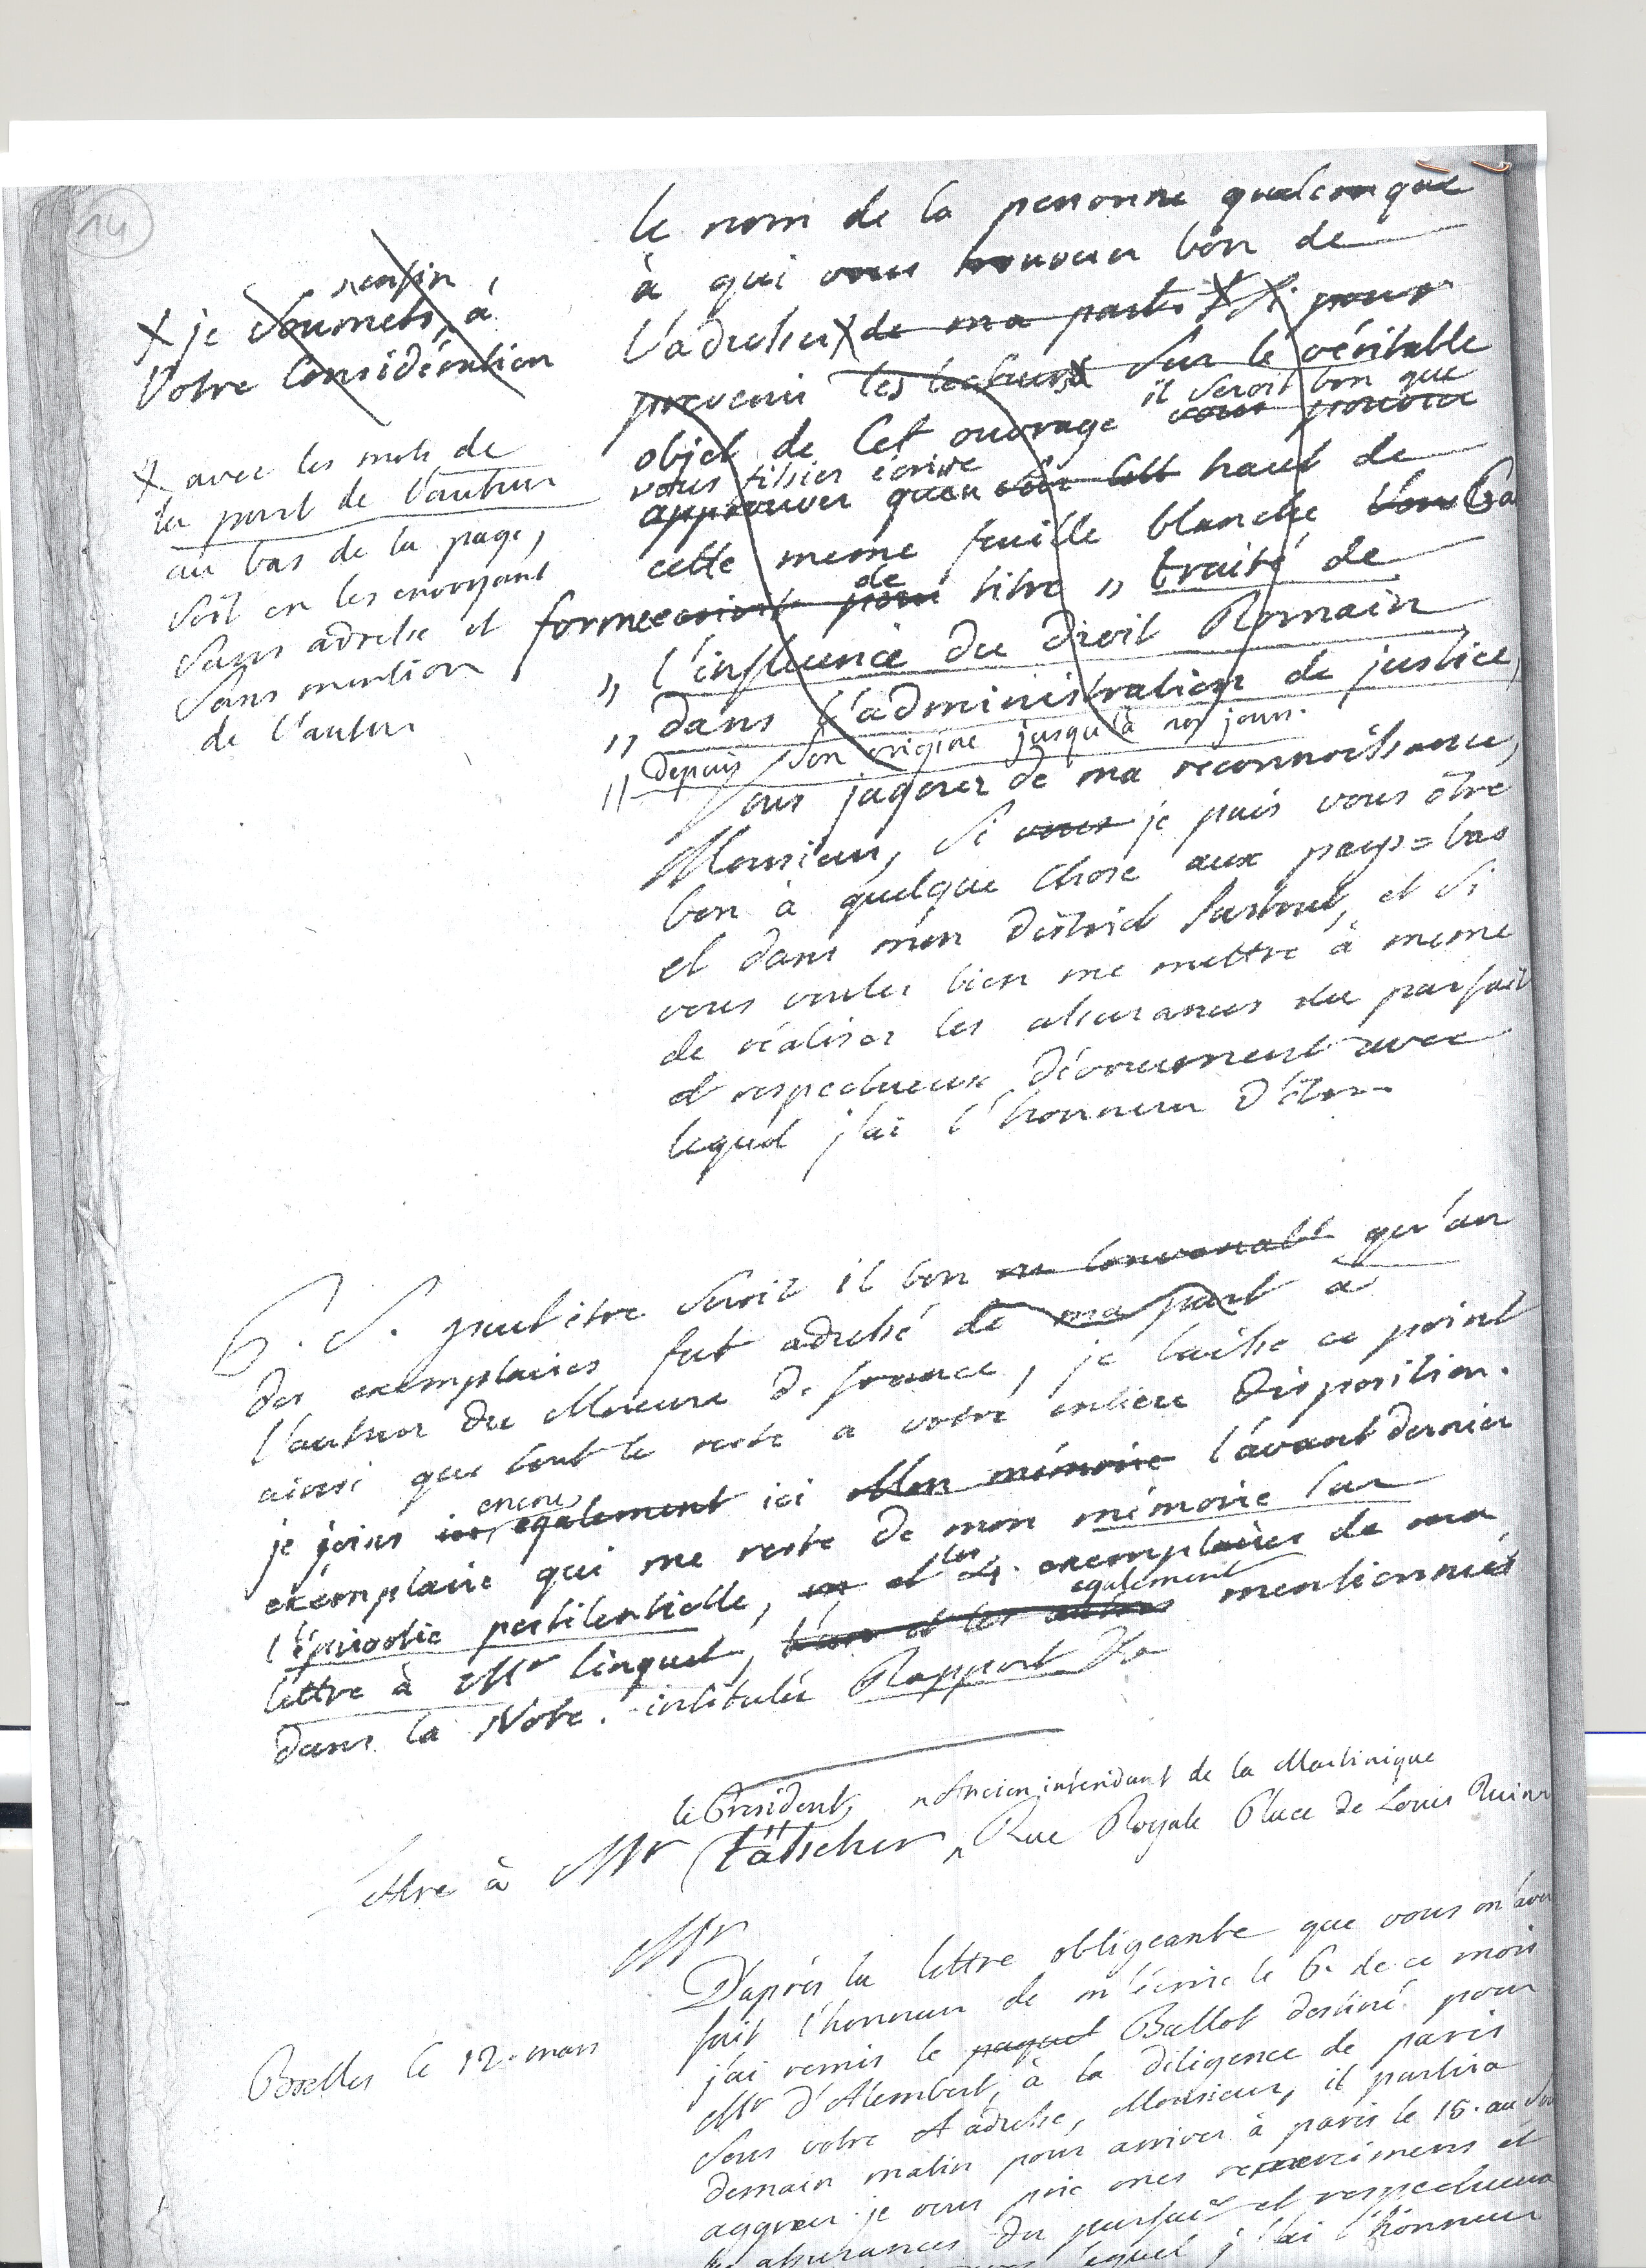 14
le nom de la personne quelconque
à qui vous trouverez bon de
l'adresser X de ma part X S. pour
prevenir les lecteurs X sur le véritable
il seroit bon que
objet de cet ouvrage vous pourriez
vous fissiez écrire
approuver qu'en haut de
cette meme feuille blanche
de
forme titre " traité de
" l'influence du droit Romain
" dans l'administration de justice,
" depuis son origine jusqu'à nos jours.
X je soumets, à
enfin
votre Considération
X avec les mots de
la part de l'auteur
au bas de la page,
soit en les envoyant
sans adresse et
sans mention
de l'auteur
Vous jugerez de ma reconnoissance,
Monsieur, si vous je puis vous être
bon à quelque chose aux pays=bas
et dans mon district surtout, et si
vous voulez bien me mettre à meme
de réaliser les assurances du parfait
et respectueux dévouement avec
lequel j'ai l'honneur d'être
P. S. peut être seroit il bon ou convenable qu'un
des exemplaires fut adressé de ma part à
l'auteur du Mercure de france, je laisse ce point
ainsi que tout le reste a votre entière disposition.
encore
je joins également ici Mon mémoire l'avant dernier
exemplaire qui me reste de mon mémoire sur
les
l'épizootie pestilentielle, et 4. exemplaires de ma
egalement
lettre à Mr linguet, l'un et les autres mentionnés
dans la Note. intitulée Rapport
le President, Ancien intendant de la Martinique
Lettre à Mr tascher, Rue Royale Place de Louis Quinze
Mr
D'après la lettre obligeante que vous m'avez
fait l'honneur de m'écrire le 6. de ce mois
Bxelles le 12. mars
j'ai remis le paquet Ballot destiné pour
Mr d'Alembert, à la diligence de paris
sous votre adresse, Monsieur, il partira
demain matin pour arriver à paris le 15. au soir
aggreez je vous prie mes remercimens et
les assurances du parfait et respectueux
lequel j'ai l'honneur